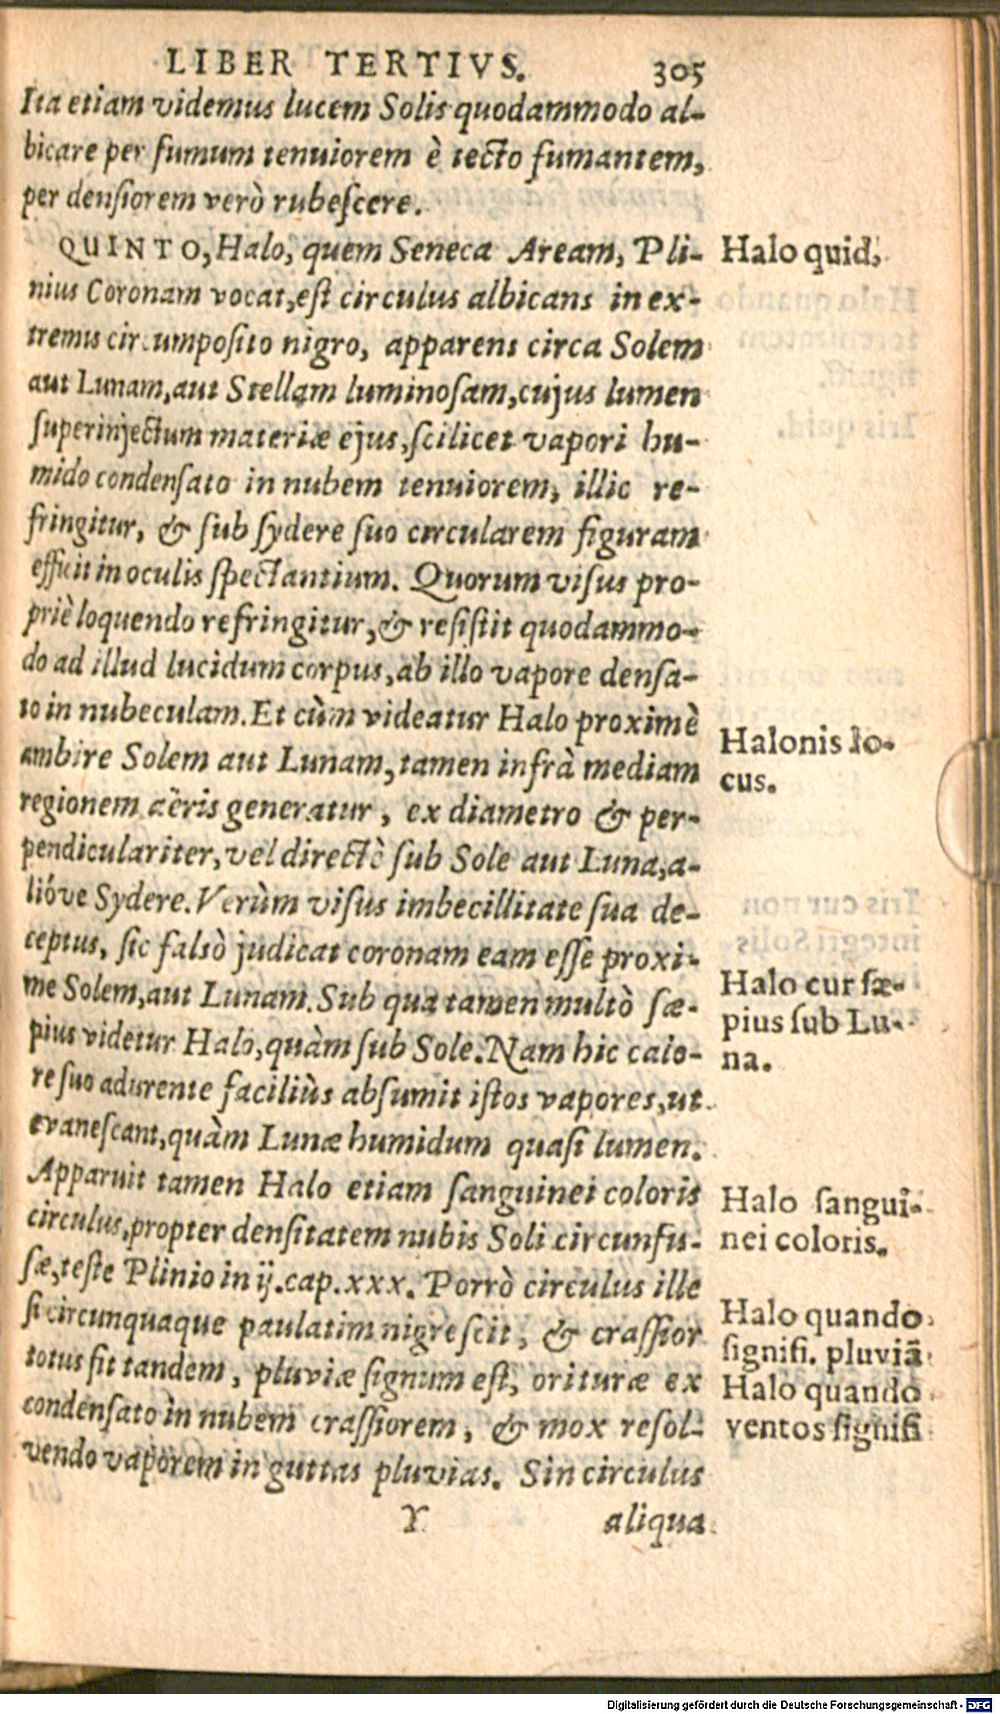 LIBER TERTIVS. 305
Ita etiam videmus lucem Solis quodammodo al-
bicare per fumum tenuiorem è tecto fumantem,
per densiorem verò rubescere.
QUINTO, Halo, quem Seneca Aream, Pli-
nius Coronam vocat, est circulus albicans in ex-
tremus circumposito nigro, apparens circa Solem
aut Lunam, aut Stellam luminosam, cujus lumen
superinjectum materiæ ejus, scilicet vapori hu-
mido condensato in nubem tenuiorem, illic re-
fringitur, & sub sydere suo circularem figuram
efficit in oculis spectantium. Quorum visus pro-
priè loquendo refringitur, & resistit quodammo-
do ad illud lucidum corpus, ab illo vapore densa-
to in nubeculam. Et cùm videatur Halo proximè
ambire Solem aut Lunam, tamen infrà mediam
regionem aëris generatur, ex diametro & per-
pendiculariter, vel directè sub Sole aut Luna, a-
lióve Sydere. Verùm visus imbecillitate sua de-
ceptus, sic falsò judicat coronam eam esse proxi-
me Solem, aut Lunam. Sub qua tamen multò sæ-
pius videtur Halo, quàm sub Sole. Nam hic calo-
re suo adurente faciliùs absumit istos vapores, ut
evanescant, quàm Lunæ humidum quasi lumen.
Apparuit tamen Halo etiam sanguinei coloris
circulus, propter densitatem nubis Soli circunfu-
sæ, teste Plinio in ij. cap. xxx. Porrò circulus ille
si circunquaque paulatim nigrescit, & crassior
totus fit tandem, pluviæ signum est, orituræ ex
condensato in nubem crassiorem, & mox resol-
vendo vaporem in guttas pluvias. Sin circulus
Y aliqua
Halo quid.
Halonis lo-
cus.
Halo cur sæ-
pius sub Lu-
na.
Halo sangui-
nei coloris.
Halo quando
signifi. pluviã
Halo quando
ventos signifi
Digitalisierung gefördert durch die Deutsche Forschungsgemeinschaft - DFG